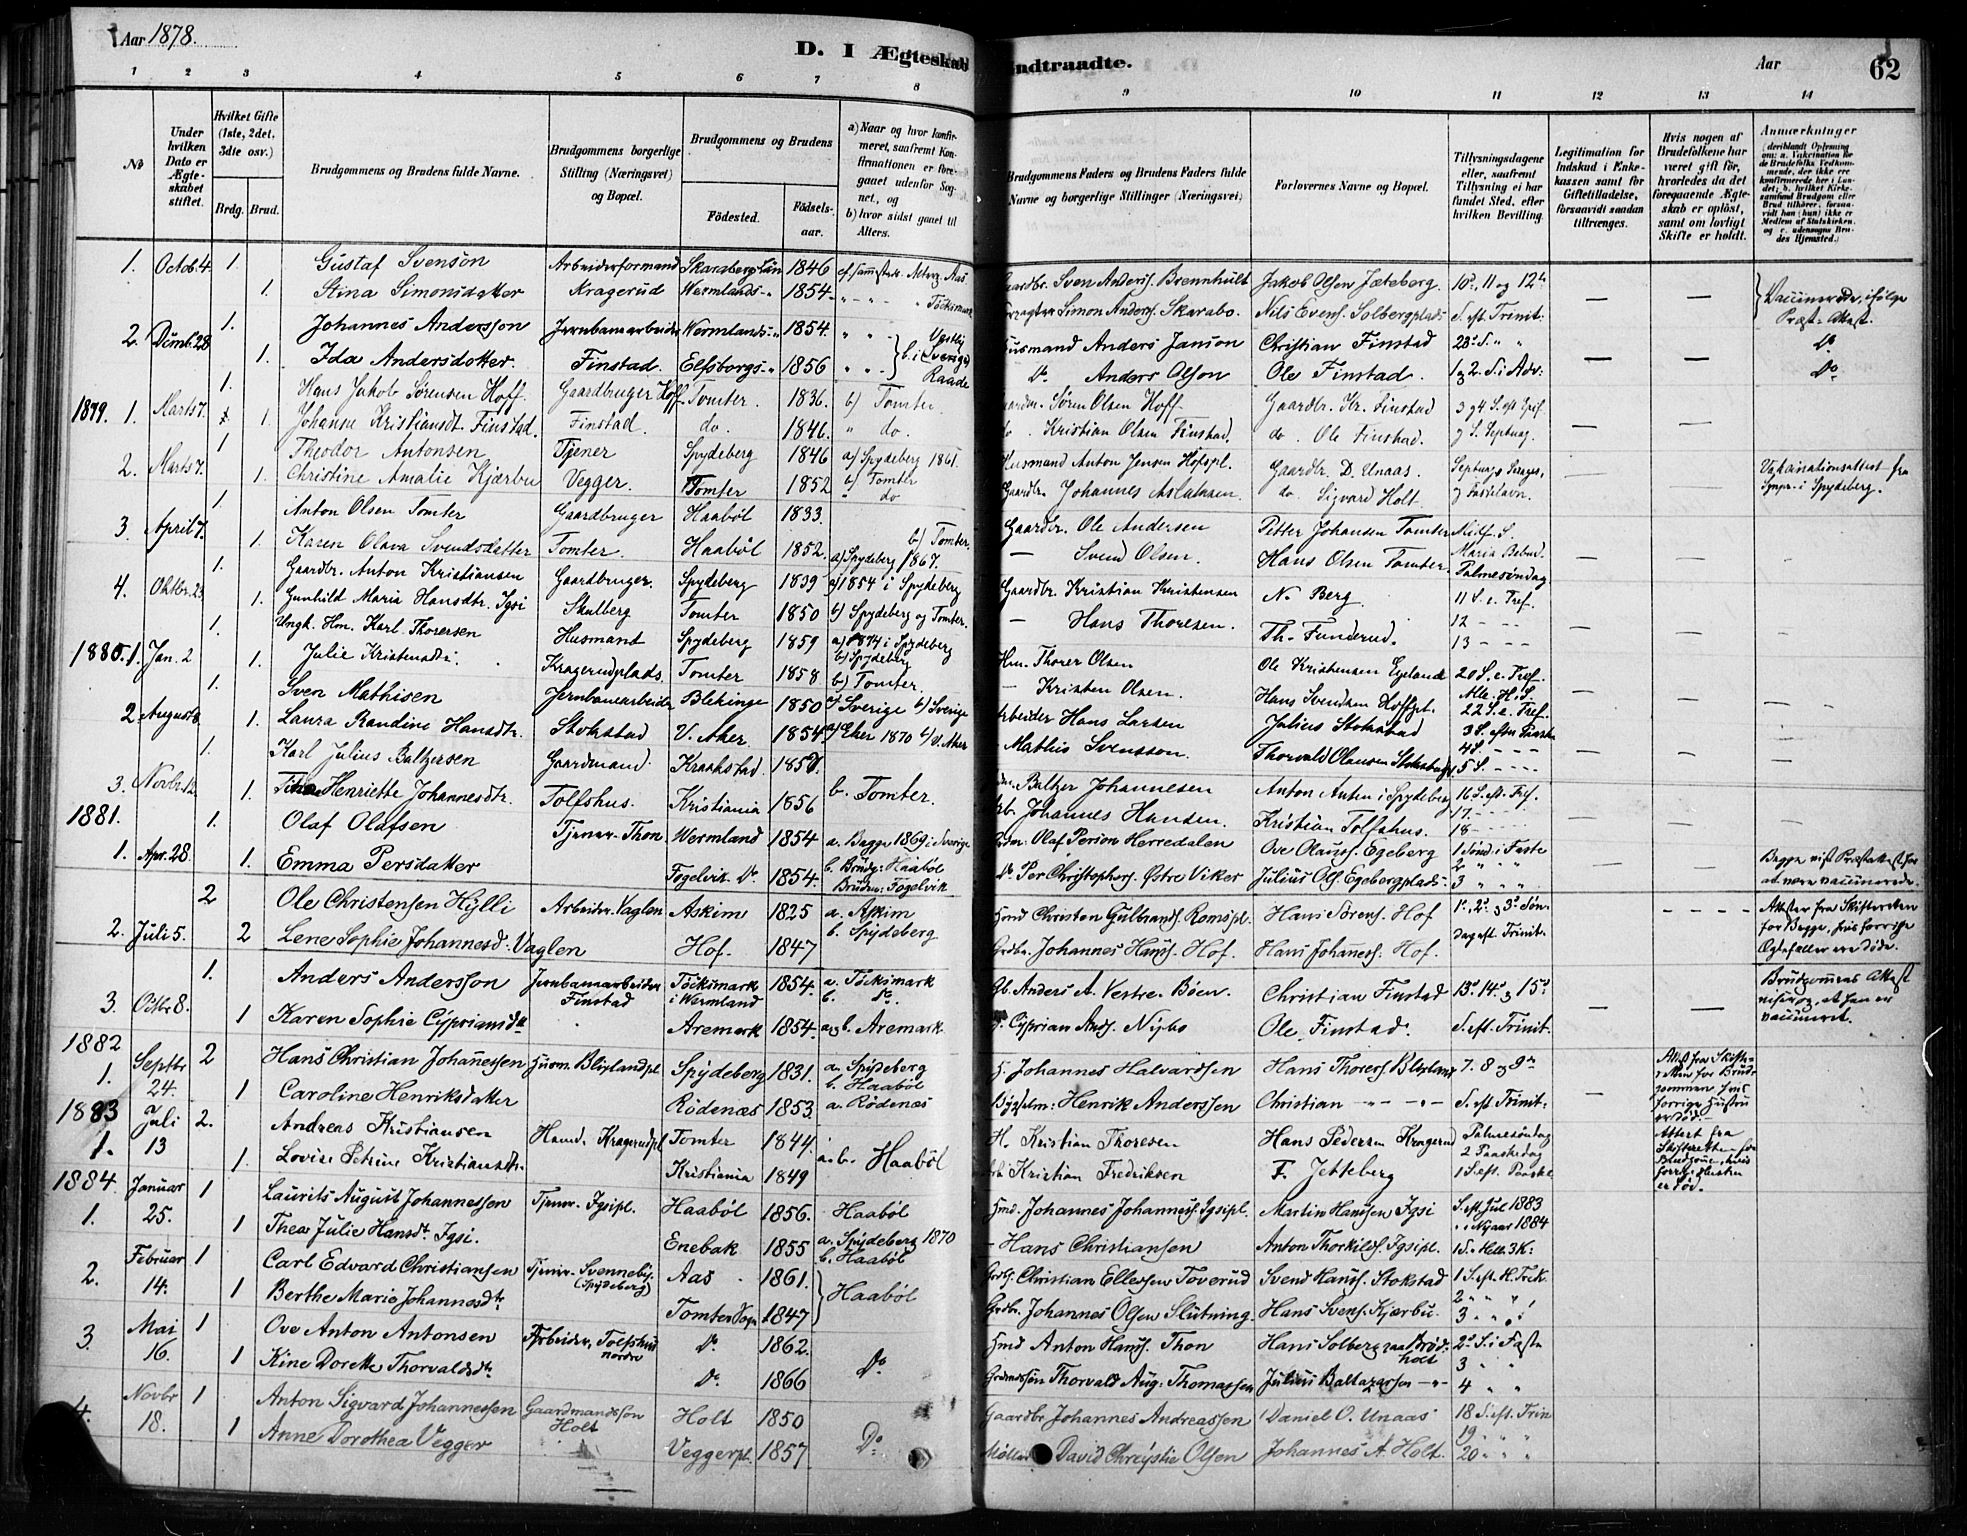 Aar 1878.
D. I Ægteskab Indtraadte.
Aar
62
1 2 3 4 5 6 7 8 9 10 11 12 13 14
No
Under hvilken Dato er Ægteskabet stiftet.
Hvilket Gifte (1ste, 2det, 3die osv.)
Brdg. Brud.
Brudgommens og Brudens fulde Navne.
Brudgommens borgerlige Stilling (Næringsvei) og Bopæl.
Brudgommens og Brudens
Fødested.
Fødselsaar.
a) Naar og hvor konfirmeret, saafremt Konfirmationen er foregaaet udenfor Sognet, og
b) hvor sidst gaaet til Alters.
Brudgommens Faders og Brudens Faders fulde Navne og borgerlige Stillinger (Næringsvei)
Forlovernes Navne og Bopæl.
Tillysningsdagene eller, saafremt Tillysning ei har fundet Sted, efter hvilken Bevilling.
Legitimation for Indskud i Enkekassen samt for Giftetilladelse, forsaavidt saadan tiltrænges.
Hvis nogen af Brudefolkene har været gift før, hvorledes da det foregaaende Ægteskab er opløst, samt om lovligt Skifte er holdt.
Anmærkninger
1. Octob. 4. 1. Gustaf Svenson Arbeiderformand Skaraborg Län 1846 Sven Anderss. Brennhult Jakob Olsen Jæteberg. 10de, 11 og 12te
1. Stina Simonsdatter Kragerud Wermlands-" 1854 Töcksmark Simon Anderss. Skarabo. Nils Evens. Solbergplads S. eft. Trinit. Vaccinerede, ifølge Præst-Attest.
2. Decmb. 28 1. Johannes Andersson Jernbanearbeider Wermlands-" 1854. Vestby Husmand Anders Janson Christian Finstad 23de S. " " Do
1. Ida Andersdotter. Finstad. Elfsborgs-" 1856 b. i Sverige Raade Do. Anders Olson Ole Finstad. 1 og 2. S. i Adv: Do
1879. 1. Marts 7. 1. Hans Jakob Sørensen Hoff. Gaardbruger Hoff. Tomter. 1836. b) Tomter. Søren Olsen Hoff. Gaardbr. Kr. Finstad 3 og 4 S. eft Epif.
1. Johanne Kristiansdt. Finstad. Finstad. do. 1846. " do. do. Kristian Olsen Finstad. do. Ole Finstad. og S. Septuag.
2. Marts 7. 1 Theodor Antonsen Tjener Spydeberg 1846 a) Spydeberg 1861. Husmand Anton Jensen Hofspl. Gaardbr. D. Unaas. Septuag.
1. Christine Amalie Kjærbu Vegger. Tomter 1852 b) Tomter do Gaardbr. Johannes do. Sigvard Holt og Fastelavn. Vakcinationsattest fra Sognpr. i Spydeberg.
3. April 7. 1 Anton Olsen Tomter Gaardbruger Haabøl 1833. b) Tomter. Gaardbr. Ole Andersen Petter Johansen Tomter Midf. S.
1. Karen Olava Svendsdatter Tomter. Haabøl 1852. a) Spydeberg 1867. — Svend Olsen. Hans Olsen Tomter. Maria Bebud. Palmesøndag
4. Oktbr. 23 1. Gaardbr. Anton Kristiansen Gaardbruger. Spydeberg 1839 a) 1854 i Spydeberg Gaardbr. Kristian Kristensen N. Berg. 11 S. e. Tref.
1. Gunhild Maria Hansdtr. Igsi Skulberg Tomter 1850 b) Spydeberg og Tomter. — Hans Thoresen. Th. Funderud. 12 - - - 13 - - -
1880. 1. Jan. 2 1. Ungk. Hm. Karl Thoresen Husmand Spydeberg 1859 a) 1874 i Spydeberg b) Spydeberg Hm. Thorer Olsen Ole Kristensen Egeland 20 S. e. Tref.
1. Julie Kristensdtr. Kragerudplads. Tomter 1858 b) Tomter. — Kristen Olsen. Hans Svendsen Hoffpl. Alle. H. S. 22 S. e. Tref.
2. August 1. Sven Mathisen Jernbanearbeider Blekinge 1850 a) Sverige b) Sverige Arbeider Hans Larsen Julius Stokstad 3 S. efter Paaske
1. Laura Randine Hansdtr. Stokstad V. Aker 1854 a) Eker 1870 b) V. Aker Mathis Svensson. Thorvald Olausen Stokstad 4 S. - - - 5 S. - - -
3. Novbr. 12 1. Karl Julius Baltzersen Gaardmand Kraakstad 1850. b. Tomter. Baltzer Johannesen Anton Anten i Spydeberg 16 S. eft. Tref.
1. Tina Henriette Johannesdtr. Tolfshus. Kristiania 1856 Johannes Hansen. Kristian Tolfshus. 17 - - - 18 - - -
1881. 1. Apr. 28. 1. Olaf Olafsen Tjener. Thon Wermland 1854 a. Begge 1869 i Sverige Olaf Person Herredalen Ove Olauss. Egeberg 1 Sønd i Faste
1. Emma Persdatter Fogelvik. Do. 1854. b. Brudg: Haabøl Bruden: Fogelvik Do Per Christophers. Østre Viker Julius Ols. Egebergplads. 2 " " " 3 " " " Begge vist Præstattest for at være vaccinerede.
2. Juli 5. 2 Ole Christensen Hylli Arbeider. Vaglen Askim 1825 a. Askim b. Spydeberg Hmd Christen Gulbrands. Romspl. Hans Sørens. Hof 1ste, 2den og 3die Søndag eft. Trinit. - - - - Attester fra Skifteretten for Begge, hvis forrige Ægtefæller ere døde.
2 Lene Sophie Johannesd. Vaglen Hof. 1847 Grdbr. Johannes Hanss. Hof. Hans Johaness. Hof.
3. Octbr 8. 1. Anders Andersson Jernbanearbeider Finstad Töcksmark i Wermland 1854. a. Töcksmark b. Do. Gb. Anders A. Vestre Böen. Christian Finstad 13de 14de og 15de Brudgommens Attest viser og, at han er vaccineret.
1 Karen Sophie Cypriansdtr Aremark 1854. a og b. Aremark Cyprian Ands. Nybo Ole Finstad. S. eft. Trinit.
1882 1. Septbr 24. 2 Hans Christian Johannessen Husm. Blixlandpl. Spydeberg 1831. a. Spydeberg b. Haabøl Johannes Halvardsen Hans Thoress Blixland 7. 8 og 9de Attest fra Skifteretten for Brudgommen hvis forrige Hustru er død.
1 Caroline Henriksdatter Rödenæs 1853. a. Rödenæs Henrik Anderssen Christian -"- -"- S. eft. Trinit:
1883 1. Juli 13 2. Andreas Kristiansen Husmd. Kragerudpl. Tomter 1844. a. b. Haabøl H. Kristian Thoresen Hans Pedersen Kragerud Palmesøndag 2 Paaskedag Attest fra Skifteretten for Brudgom. hvis forr. Hustru er død.
1. Lovise Petrine Kristiansdtr. Kristiania 1849 Kristian Fredriksen F. Jetteberg 1 S. eft. Paaske
1884 1. Januar 25. 1 Laurits August Johannessen Tjener. Igsipl. Haabøl 1856. Haabøl Hmd. Johannes Johanness. Igsipl. Martin Hanssen Igsi S. eft. Jul 1883 " i Nyaar 1884
1 Thea Julie Hansdt. Igsi. Enebak 1855 a. Spydeberg 1870 b. Haabøl - Hans Christiansen Anton Thorkilds. Igsipl. 1 S. Hell. 3 K:
2. Februar 14. 1 Carl Edvard Christiansen Tjener. Svenneby. (Spydeberg) Aas 1861. Haabøl Christian Ellessen Toverud Svend Hanss. Stokstad 1 S. eft. H. Trek.
1 Berthe Marie Johannesdtr Tomter Sogn 1847 Grdbr. Johannes Olsen Slutning. Hans Svens. Kjærbu. 2 " " " 3 " " "
3. Mai 16. 1 Ove Anton Antonsen Arbeider. Tolfshus nordre Do. 1862. Do Hmd Anton Hanss. Thon Hans Solberg paa Brødholt 2den S. i Faste
1 Kine Dorette Thorvaldsdtr Do. 1866 Thorvald Aug. Thomassen Julius Baltazarsen -"- 3 " " 4 " "
4. Novbr 18. 1 Anton Sigvard Johannessen Gaardmandssøn Holt Holt 1850 Do Gaardbr Johannes Andreassen Daniel O. Unaas 18 S. eft. Trin
1 Anne Dorothea Vegger Veggerpl. 1857 Møller David Chrystie Olsen Johannes A. Holt. 19 " " " 20 " " "